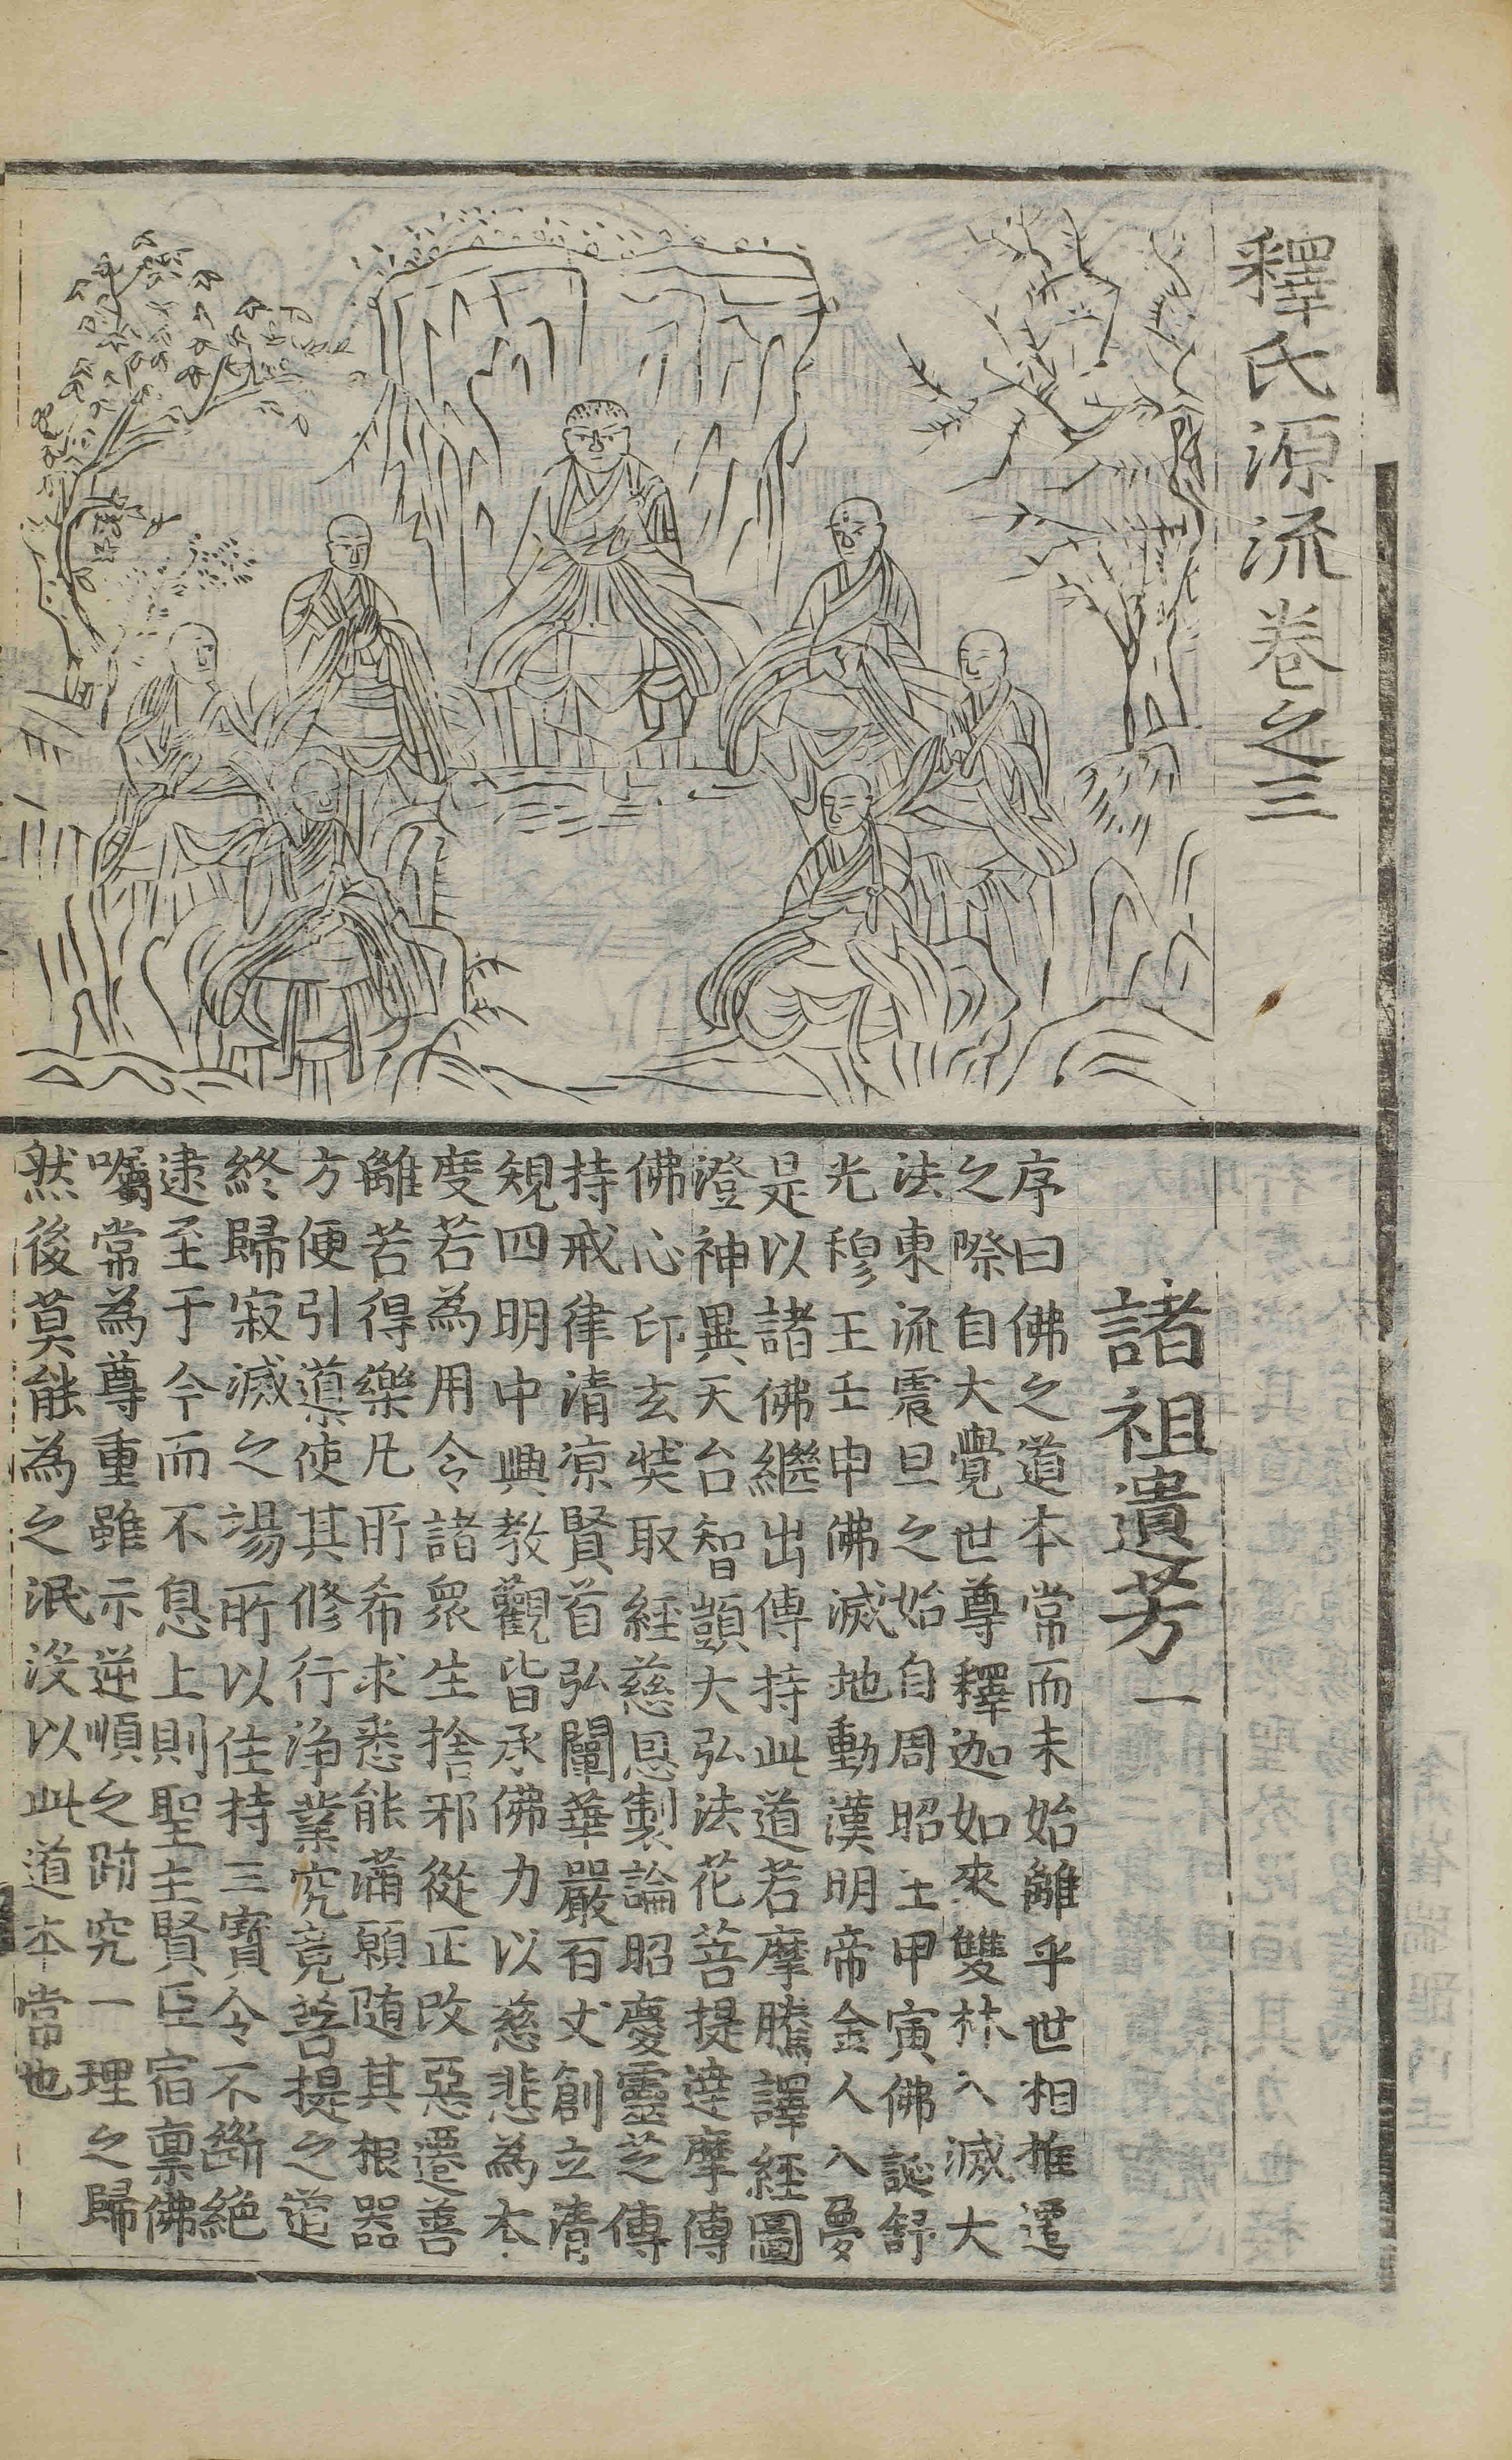 釋氏源流卷之三
諸祖遺芳一
序曰佛之道本常而未始離乎世相推遷
之際自大覺世尊釋迦如來雙林入滅大
法東流震旦之始自周昭王甲寅佛誕舒
光穆王壬申佛滅地動漢明帝金人入夢
是以諸佛繼出傳持此道若摩騰譯經圖
澄神異天台智顗大弘法花菩提達摩傳
佛心印玄奘取經慈恩製論昭慶靈芝傳
持戒律清凉賢首弘闡華嚴百丈創立清
規四明中興教觀皆承佛力以慈悲為本
度若為用令諸眾生捨邪從正改惡遷善
離苦得樂凡所希求悉能滿願随其根器
方便引導使其修行淨業究竟菩提之道
終歸寂滅之場所以住持三寶令不斷絕
逮至于今而不息上則聖主賢臣宿禀佛
囑常為尊重雖示逆順之跡究一理之歸
然後莫能為之泯沒以此道本常也